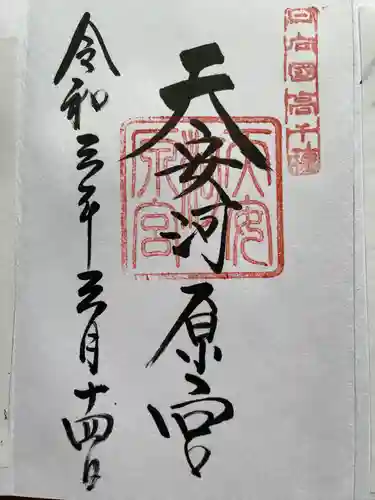 日向国高千穂
天安河原宮
天安
河原
原宮
令和三年三月十四日